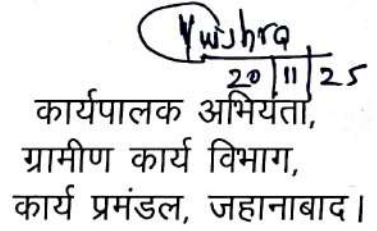 20/11/25
कार्यपालक अभियंता,
ग्रामीण कार्य विभाग,
कार्य प्रमंडल, जहानाबाद।